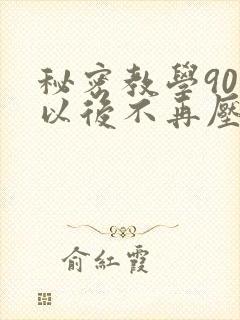 秘密教學90
以後不再壓
俞紅霞